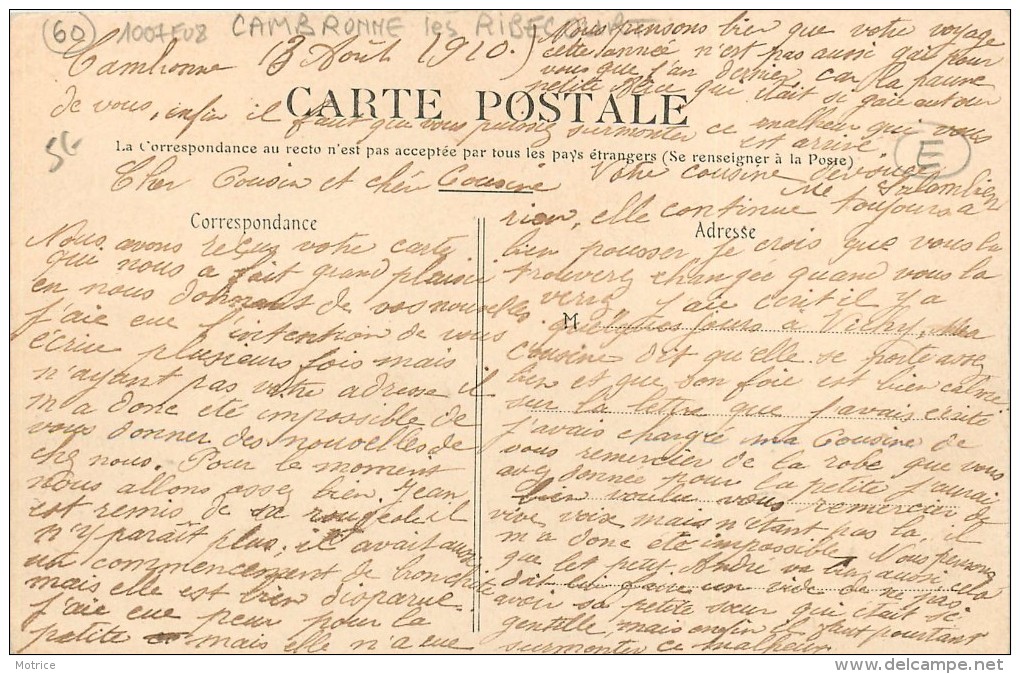 60
1007F08 CAMBRONNE les RIBECOURT
Cambronne 13 Août 1910.
CARTE POSTALE
La Correspondance au recto n'est pas acceptée par tous les pays étrangers (Se renseigner à la Poste)
E
Cher Cousin et chère Cousine
Correspondance
Nous avons reçus votre carte
qui nous a fait grand plaisir
en nous donnant de vos nouvelles
j'aie eue l'intention de vous
écrire plusieurs fois mais
n'ayant pas votre adresse il
m'a donc eté impossible de
vous donner des nouvelles de
chez nous. Pour le moment
nous allons assez bien. Jean
est remis de sa rougeole il
n'y paraît plus, il avait aussi
un commencement de bronchite
mais elle est bien disparue
j'aie eue peur pour la
petite mais elle n'a eue
Adresse
rien, elle continue toujours a
bien pousser je crois que vous la
trouverez changée quand vous la
verra j'aie écrit il y a
M
quelques jours à Vichy, Ma
Cousine dit qu'elle se porte assez
bien et que son foie est bien calmé
sur la lettre que j'avais écrite
j'avais chargé ma Cousine de
vous remercier de la robe que vous
avez donnée pour la petite j'aurai
bien voulu vous remercier de
vive voix mais n'étant pas la, il
m'a donc été impossible. Nous pensons
que le petit André va bien aussi cela
doit lui faire un vide de ne pas
avoir sa petite sœur qui était si
gentille, mais enfin il faut pourtant
surmonter ce malheur.
Nous pensons bien que votre voyage
cette année n'est pas aussi gai pour
vous que l'an dernier car la pauvre
petite Alice qui était si gaie autour
de vous, enfin il faut que vous puissiez surmonter ce malheur qui vous
est arrivé.
Votre cousine dévouée
Motrice
delcampe.net